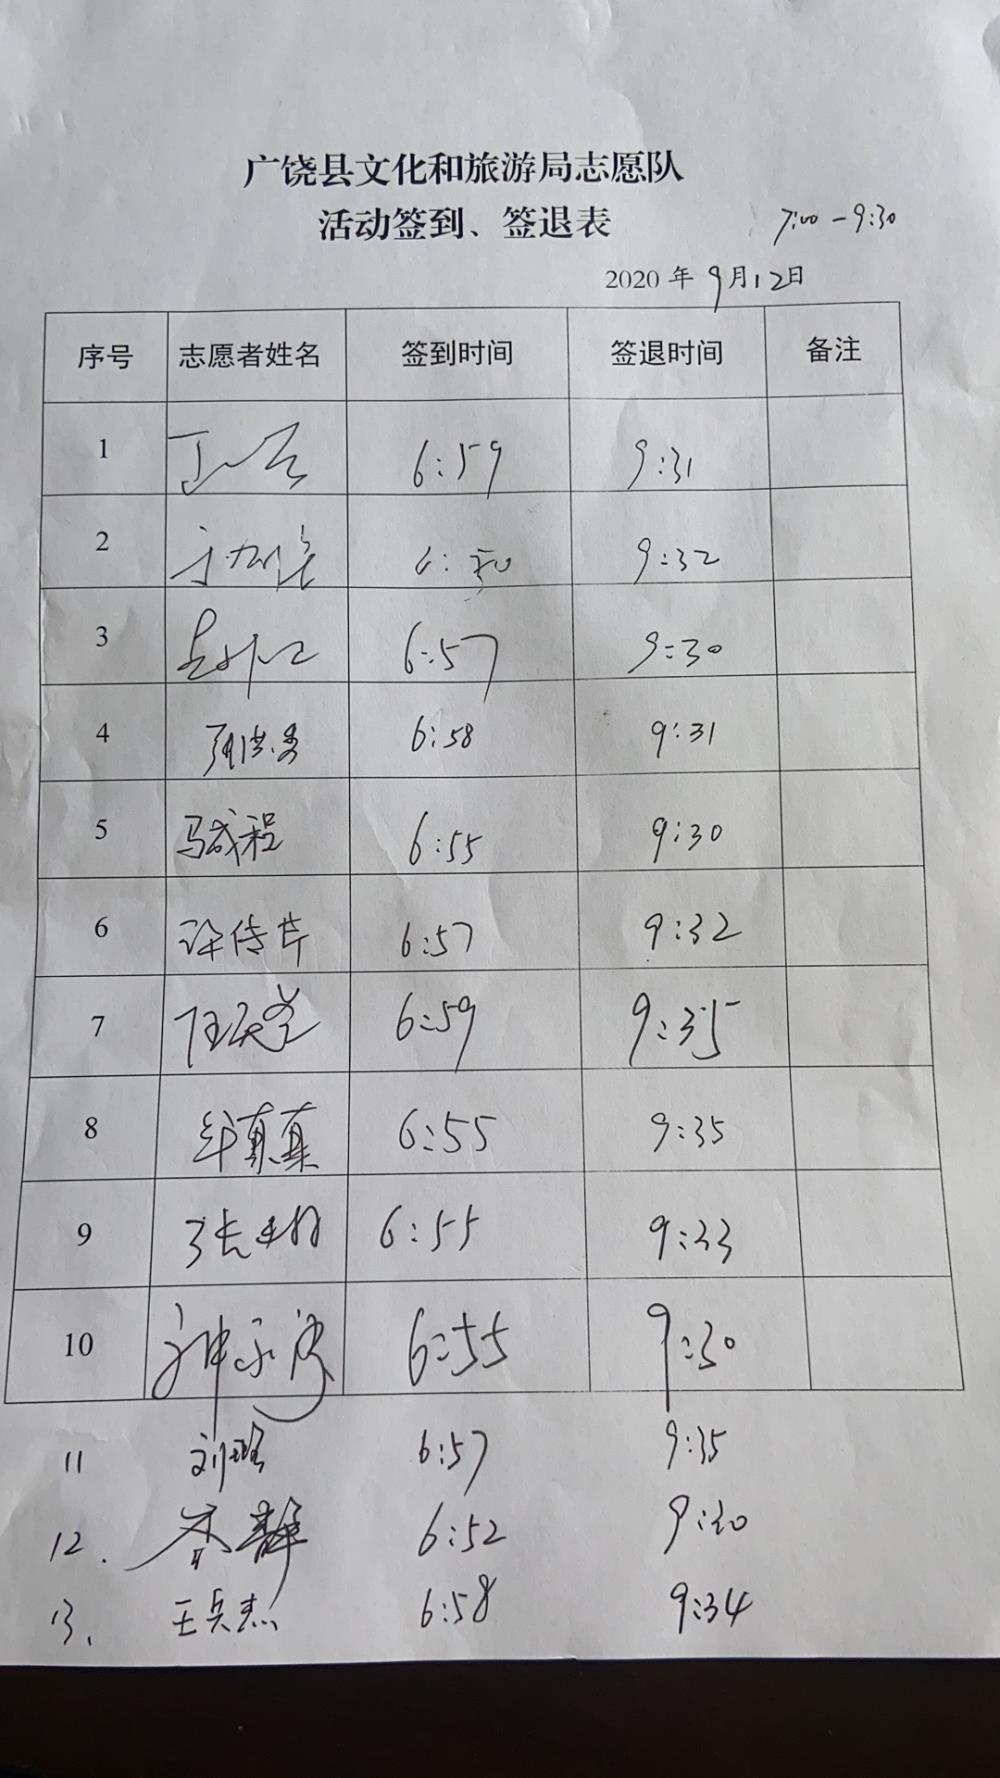 广饶县文化和旅游局志愿队
活动签到、签退表
7:00-9:30
2020年9月12日
序号 志愿者姓名 签到时间 签退时间 备注
1 6:59 9:31
2 6:50 9:32
3 6:57 9:30
4 6:58 9:31
5 马成程 6:55 9:30
6 许传芹 6:57 9:32
7 6:59 9:35
8 牟真真 6:55 9:35
9 6:55 9:33
10 6:55 9:30
11 6:57 9:35
12. 6:52 9:30
13. 王兵杰 6:58 9:34